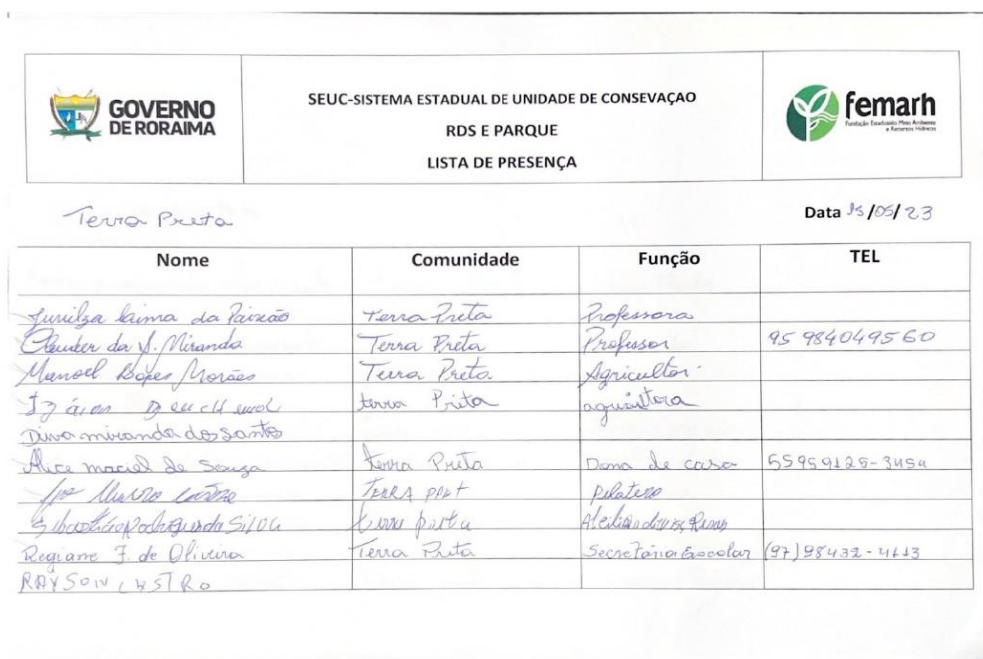 GOVERNO
DE RORAIMA
SEUC-SISTEMA ESTADUAL DE UNIDADE DE CONSEVAÇAO
RDS E PARQUE
LISTA DE PRESENÇA
femarh
Fundação Estadual do Meio Ambiente
e Recursos Hídricos
Terra Preta
Data 15/05/23
Nome Comunidade Função TEL
da Paixão Terra Preta Professora
da S. Miranda Terra Preta Professor 95 984049560
Manoel Lopes Morães Terra Preta Agricultor
terra Prita
Diva miranda dos Santos
Alice maciel de Souza terra Preta Dona de casa
TERRA
Regiane F. de Oliveira Terra Preta Secretária Escolar (97) 98432-4113
RAYSON